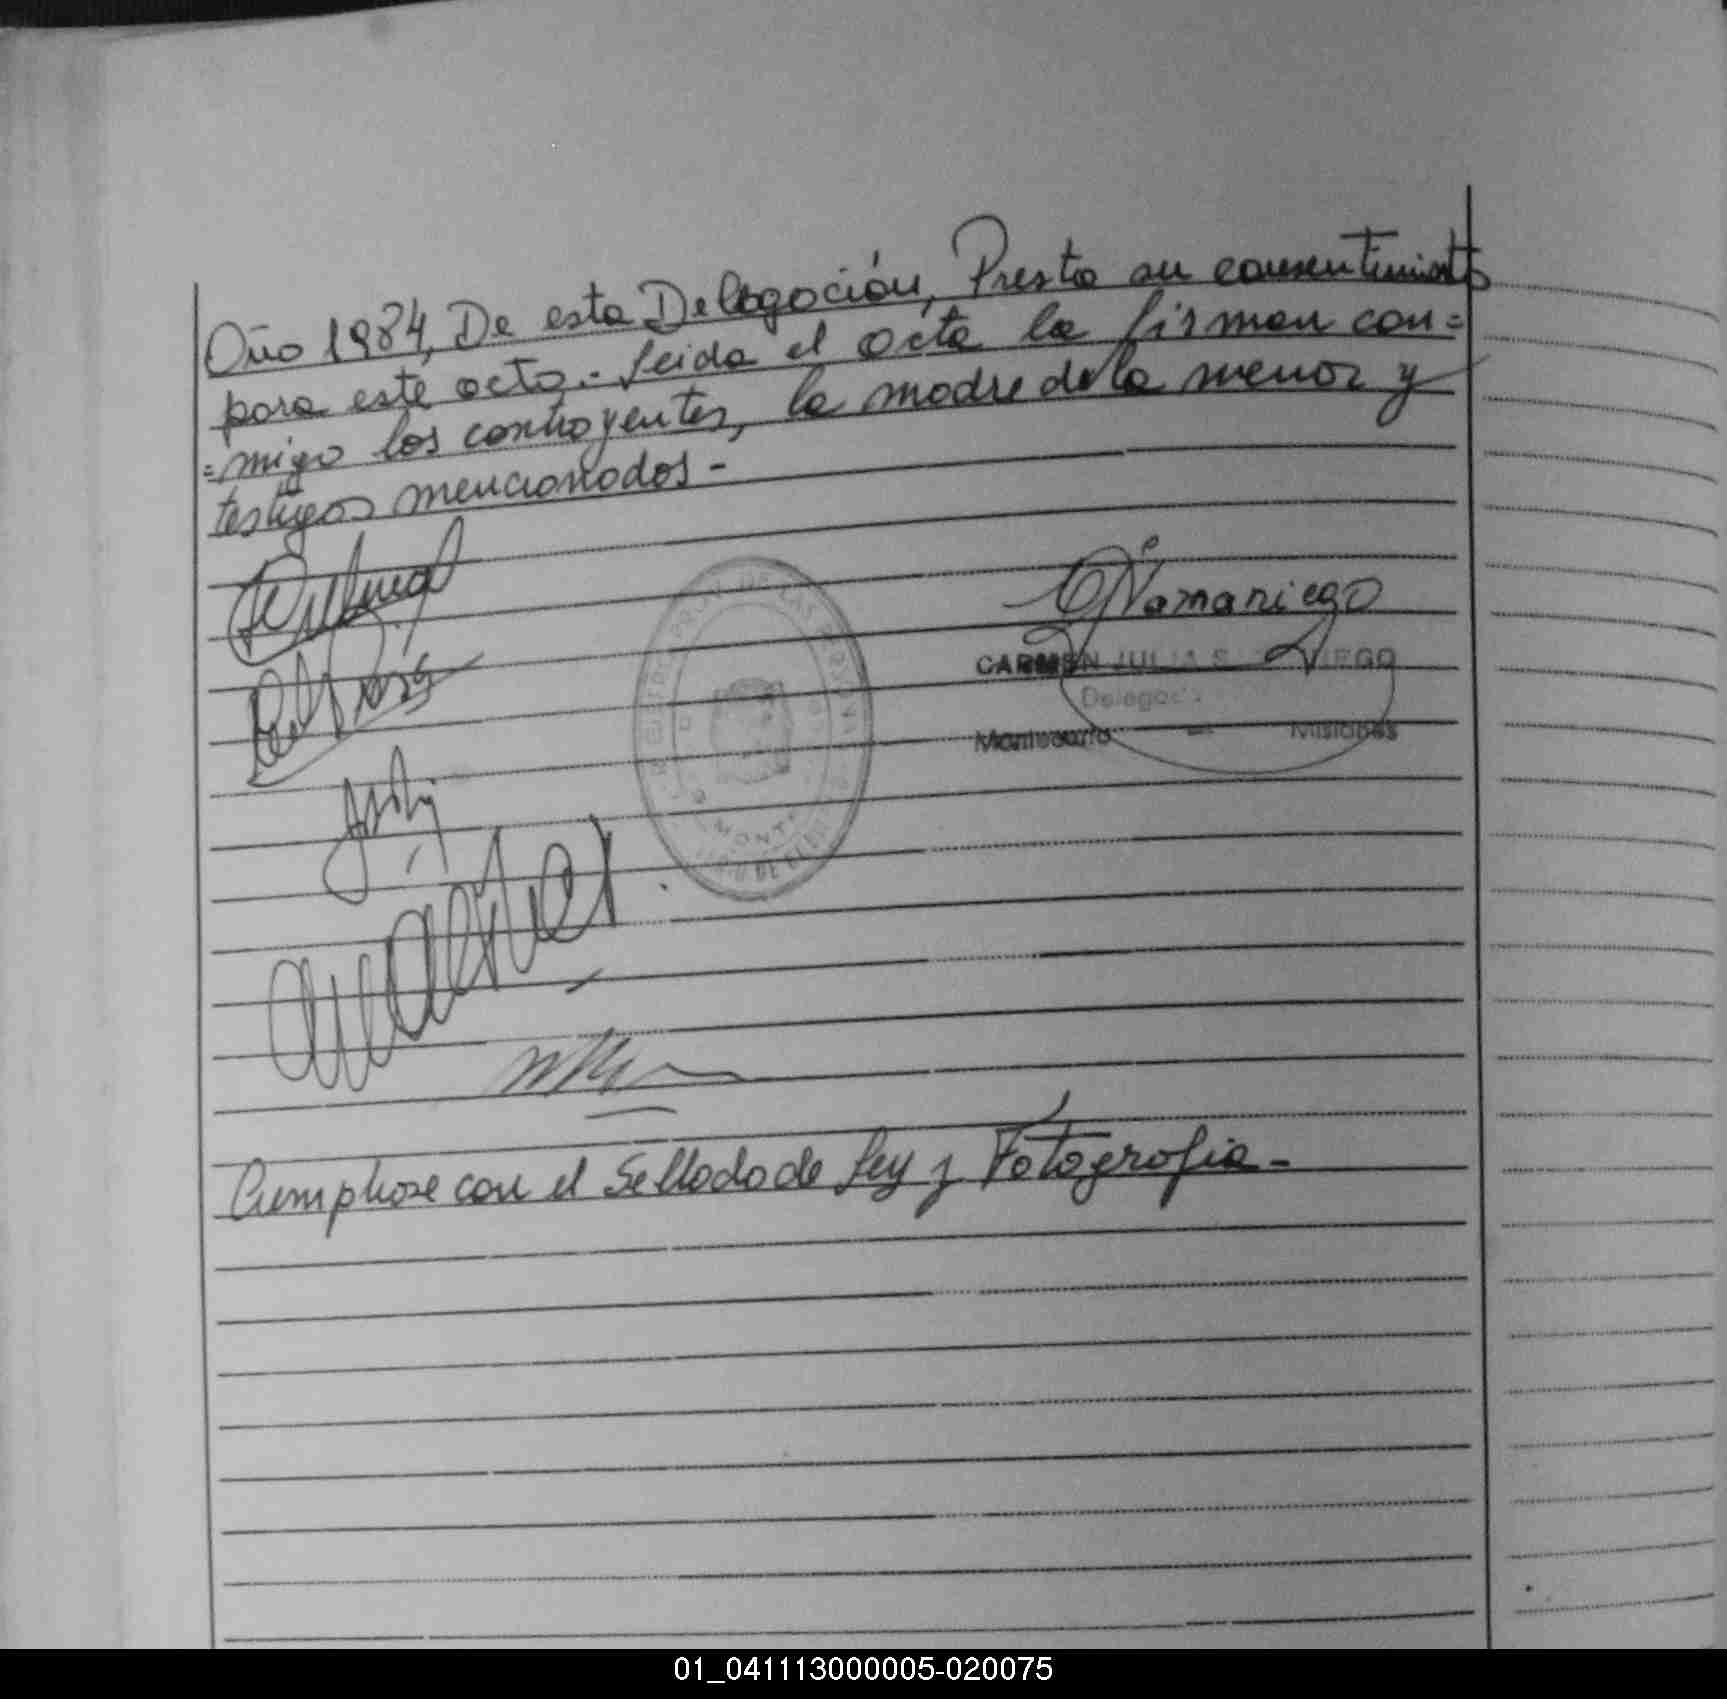 Año 1984, De esta Delegación, Presta su consentimiento
para este acto.- Leida el acta la firman con=
=migo los contrayentes, la madre de la menor y
testigos mencionados -
CJSamaniego
CARMEN JULIA S IEGO
Delegad
Montecarlo - Misiones
REGISTRO PROV. DE LAS PERSONAS
MONTE
Cumplase con el Sellado de Ley y Fotografia -
01_041113000005-020075